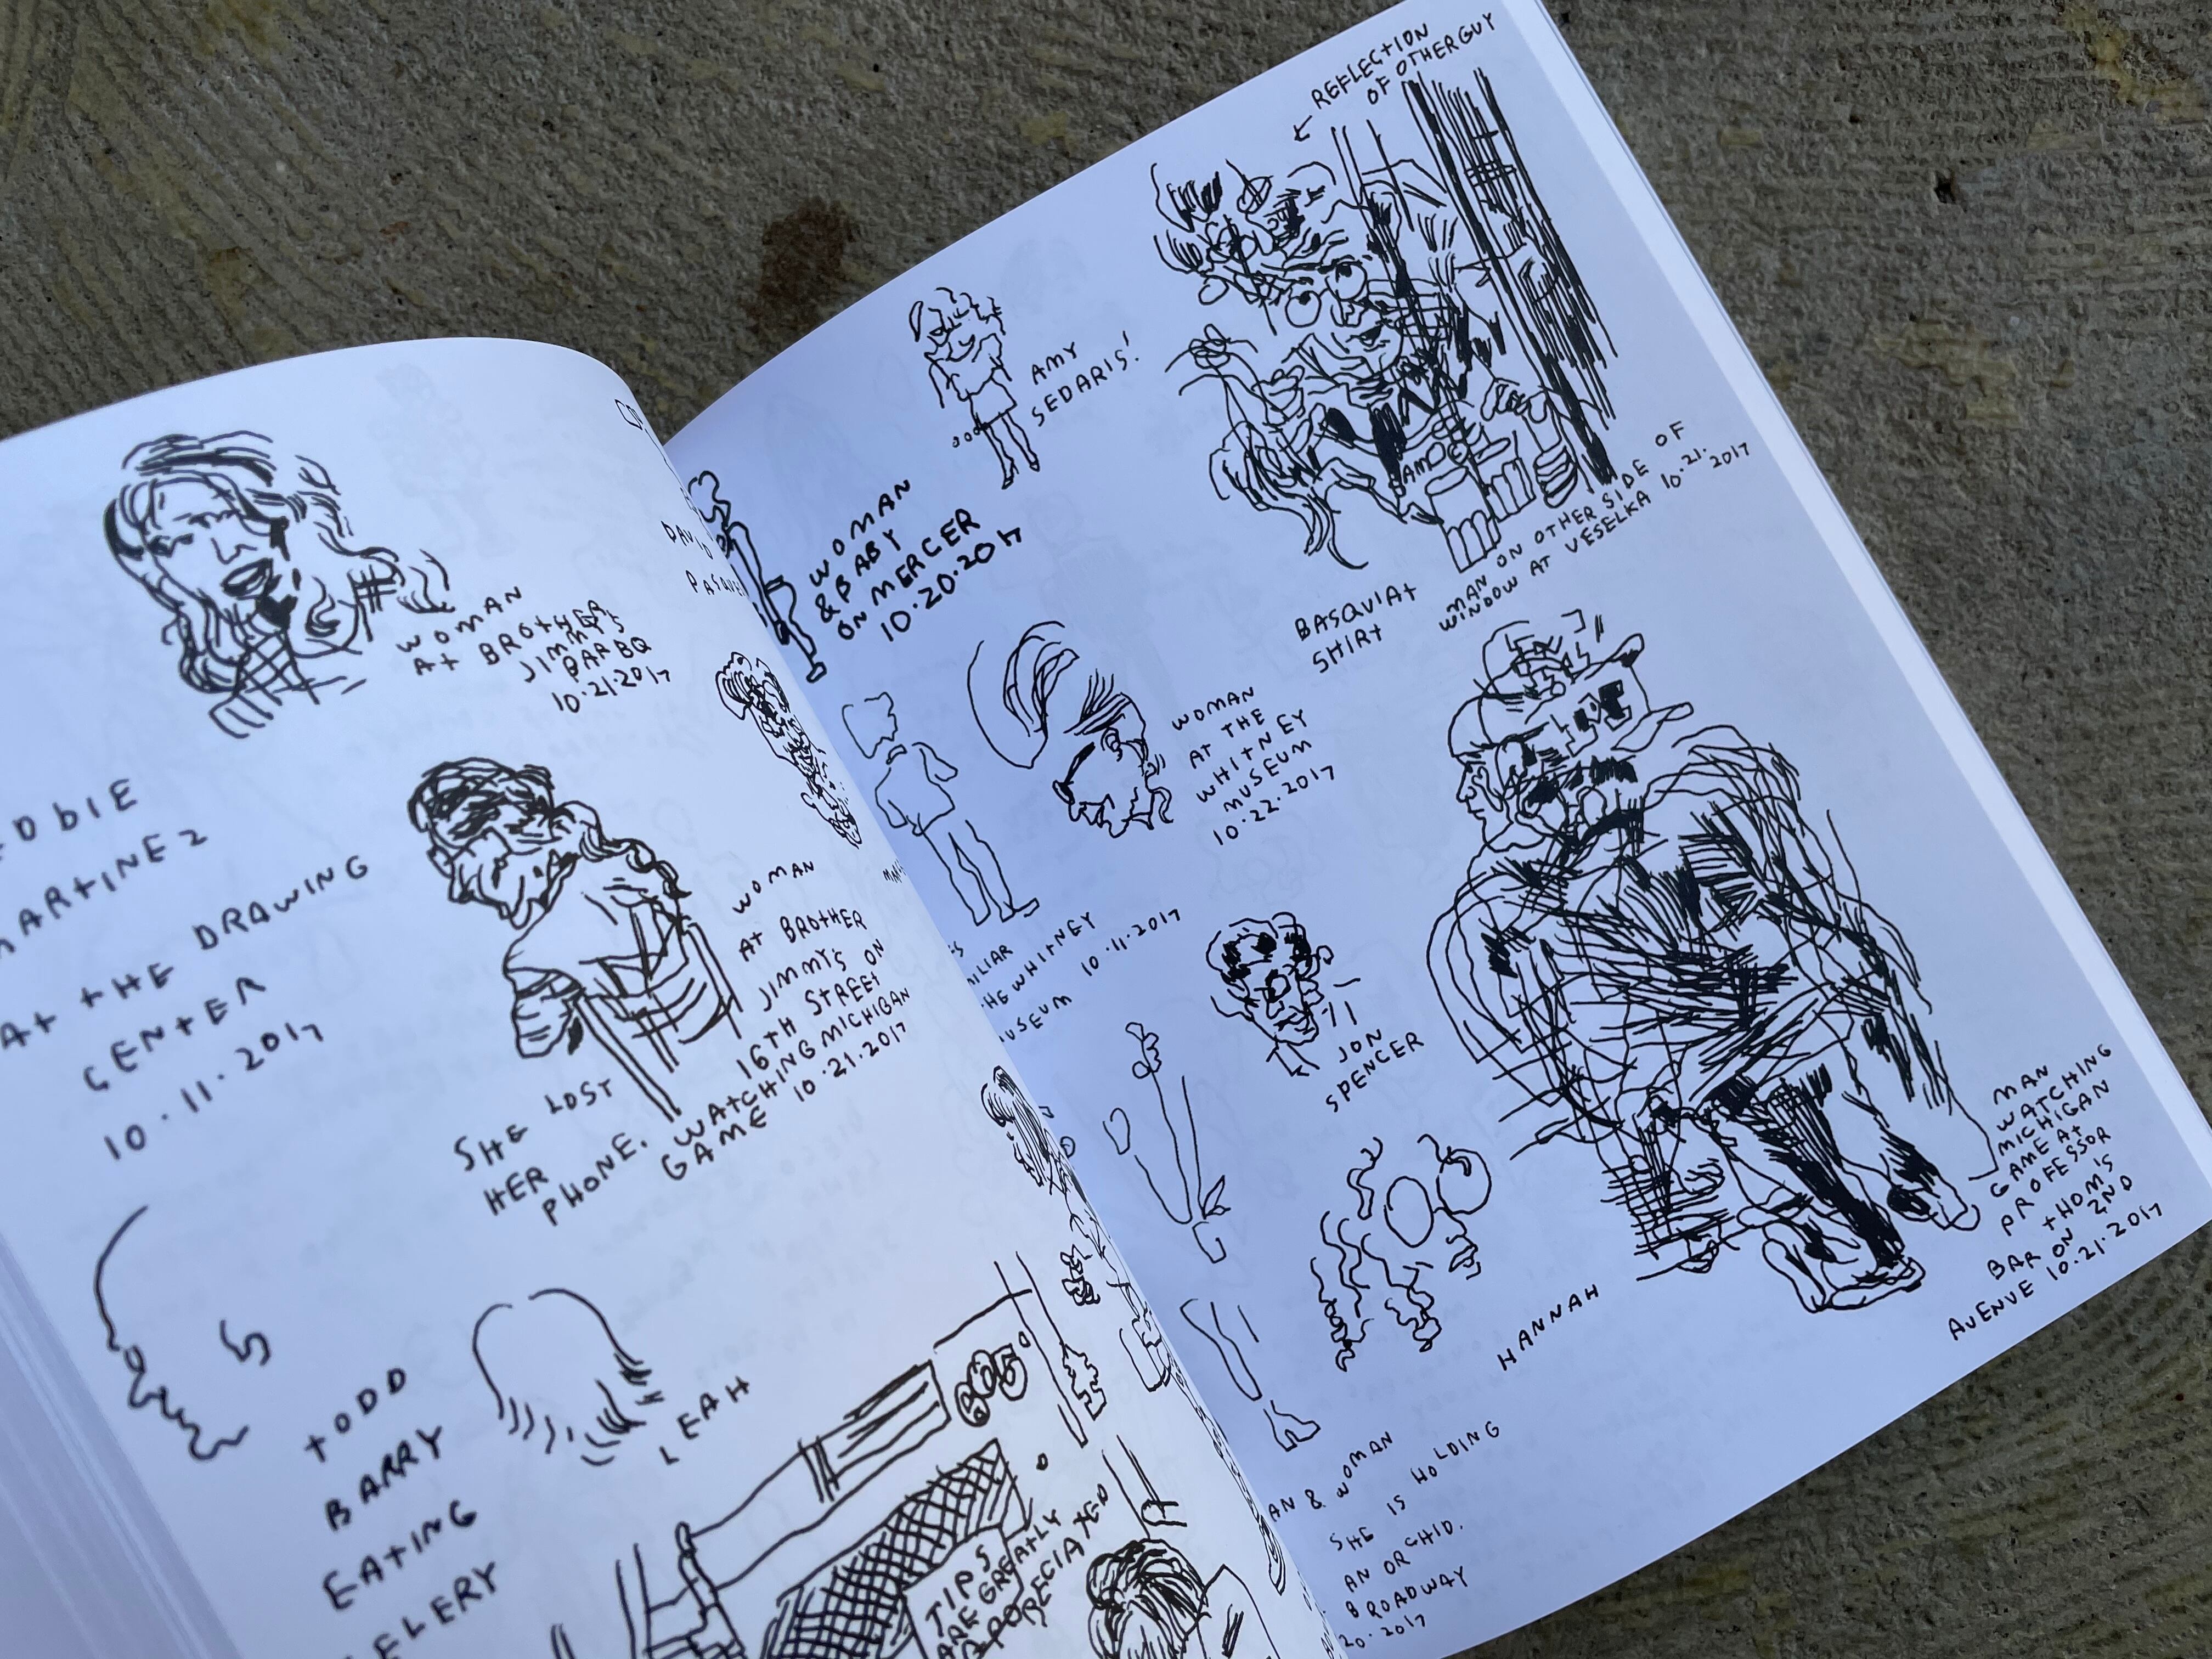 WOMAN
AT BROTHER
JIMMY'S
BAR BQ
10.21.2017
AT THE DRAWING
CENTER
10.11.2017
WOMAN
AT BROTHER
JIMMY'S ON
16TH STREET
WATCHING MICHIGAN
GAME 10.21.2017
SHE LOST
HER
PHONE.
TODD
BARRY
EATING
LEAH
TIPS
ARE GREATLY
APPRECIATED
REFLECTION
OF OTHER GUY
AMY
SEDARIS!
WOMAN
& BABY
ON MERCER
10.20.2017
MAN ON OTHER SIDE OF
WINDOW AT VESELKA 10.21.2017
BASQUIAT
SHIRT
WOMAN
AT THE
WHITNEY
MUSEUM
10.22.2017
WHITNEY
10.11.2017
JON
SPENCER
HANNAH
MAN
WATCHING
MICHIGAN
GAME AT
PROFESSOR
THOM'S
BAR ON 2ND
AVENUE 10.21.2017
& WOMAN
SHE IS HOLDING
AN ORCHID.
BROADWAY
20.2017